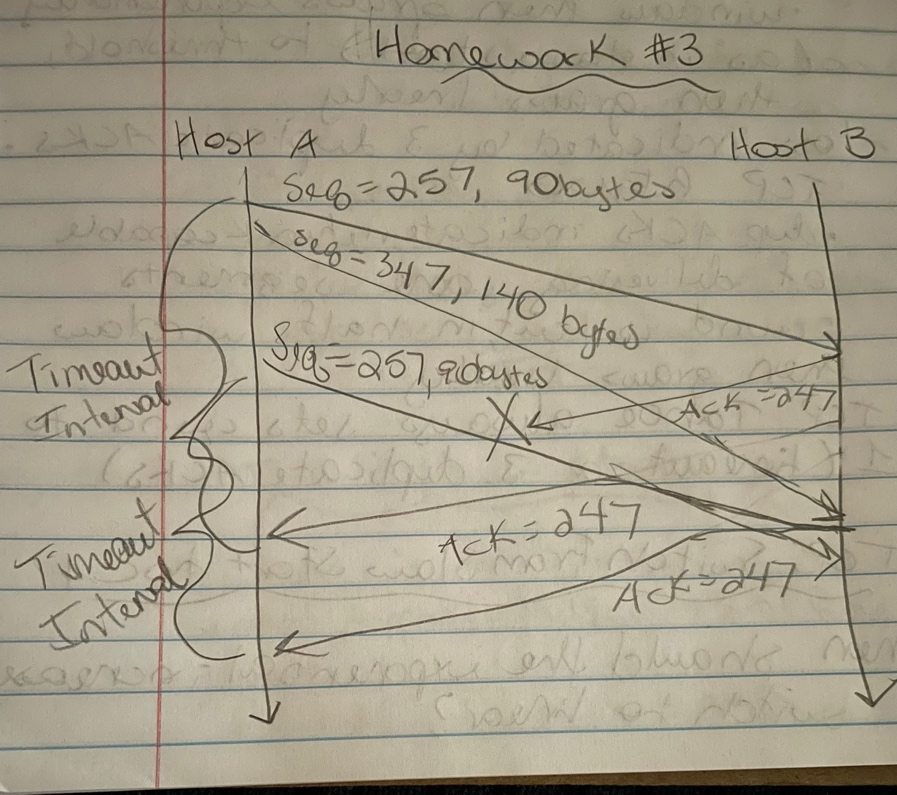 Homework #3
Host A
Host B
Seq=257, 90bytes
Seq=347, 140 bytes
Seq=257, 90bytes
Ack=247
Timeout
Interval
Ack=247
Ack=247
Timeout
Interval